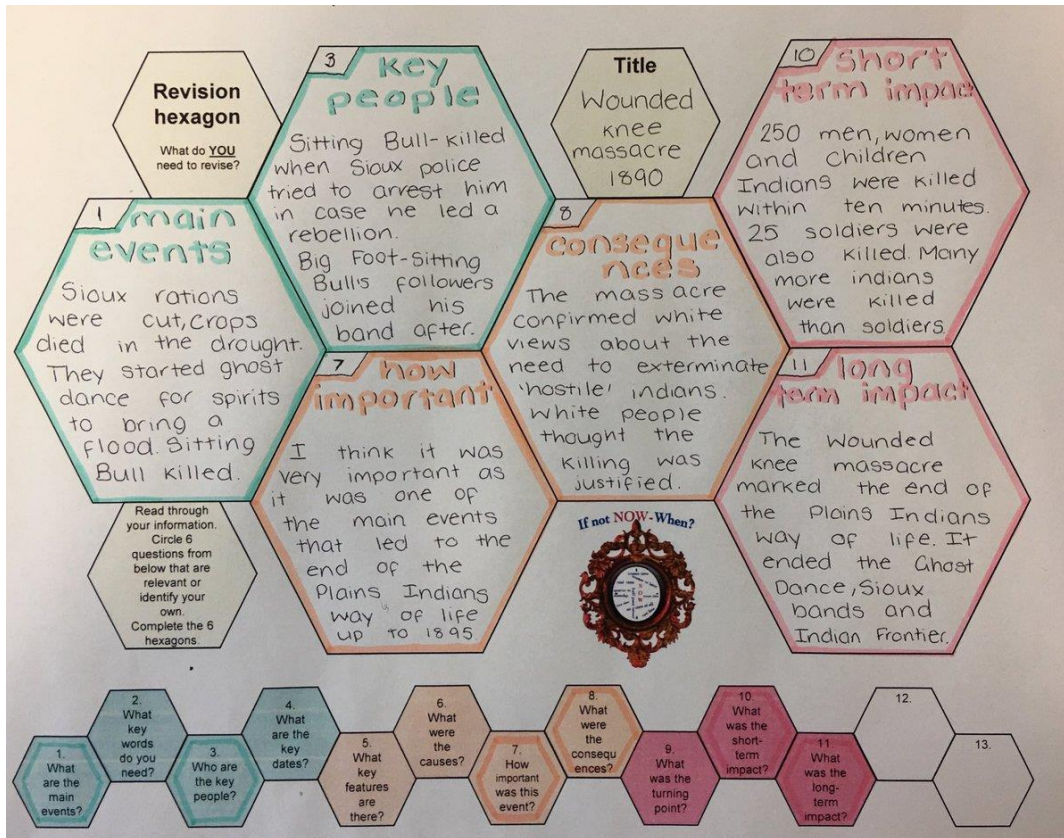 Revision
hexagon
What do YOU
need to revise?
3
key
people
Sitting Bull-killed
when Sioux police
tried to arrest him
in case he led a
rebellion.
Big Foot-Sitting
Bull's followers
joined his
band after.
Title
Wounded
Knee
massacre
1890
10
short
term impact
250 men, women
and children
Indians were killed
within ten minutes.
25 soldiers were
also killed. Many
more indians
were killed
than soldiers.
1
main
events
Sioux rations
were cut, crops
died in the drought.
They started ghost
dance for spirits
to bring a
flood. Sitting
Bull killed.
8
conseque
nces
The massacre
confirmed white
views about the
need to exterminate
'hostile' indians.
White people
thought the
killing was
justified.
7
how
important
I think it was
very important as
it was one of
the main events
that led to the
end of the
Plains Indians
way of life
up to 1895
11
long
term impact
The Wounded
Knee massacre
marked the end of
the Plains Indians
way of life. It
ended the Ghost
Dance, Sioux
bands and
Indian Frontier.
Read through
your information.
Circle 6
questions from
below that are
relevant or
identify your
own.
Complete the 6
hexagons.
If not NOW-When?
1.
What
are the
main
events?
2.
What
key
words
do you
need?
3.
Who are
the key
people?
4.
What
are the
key
dates?
5.
What
key
features
are
there?
6.
What
were
the
causes?
7.
How
important
was this
event?
8.
What
were
the
consequ
ences?
9.
What
was the
turning
point?
10.
What
was the
short-
term
impact?
11
What
was the
long-
term
impact?
12.
13.